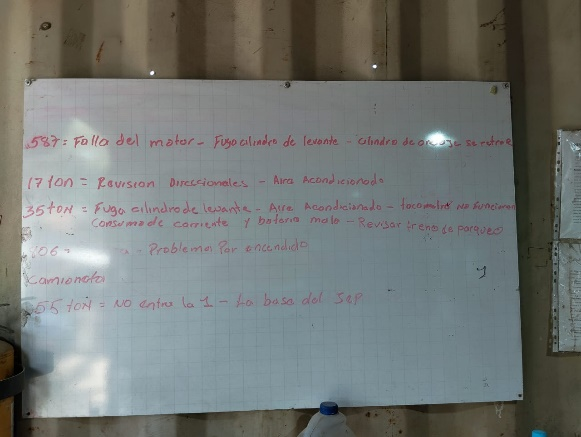 587 = Falla del motor - Fuga cilindro de levante - cilindro de se retrae
17 ton = Revision Direccionales - Aire Acondicionado
35 ton = Fuga cilindro de levante - Aire Acondicionado - tacometro No funciona
Consumo de corriente y bateria mala - Revisar freno de parqueo
- Problema Por encendido
Camioneta
1
55 ton = No entra la 1 - La base del